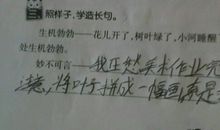 三、照样子,学造长句。
生机勃勃——花儿开了,树叶绿了,小河睡醒
处生机勃勃。
妙不可言——我正然采木作业完
将叶子拼成一幅画真是